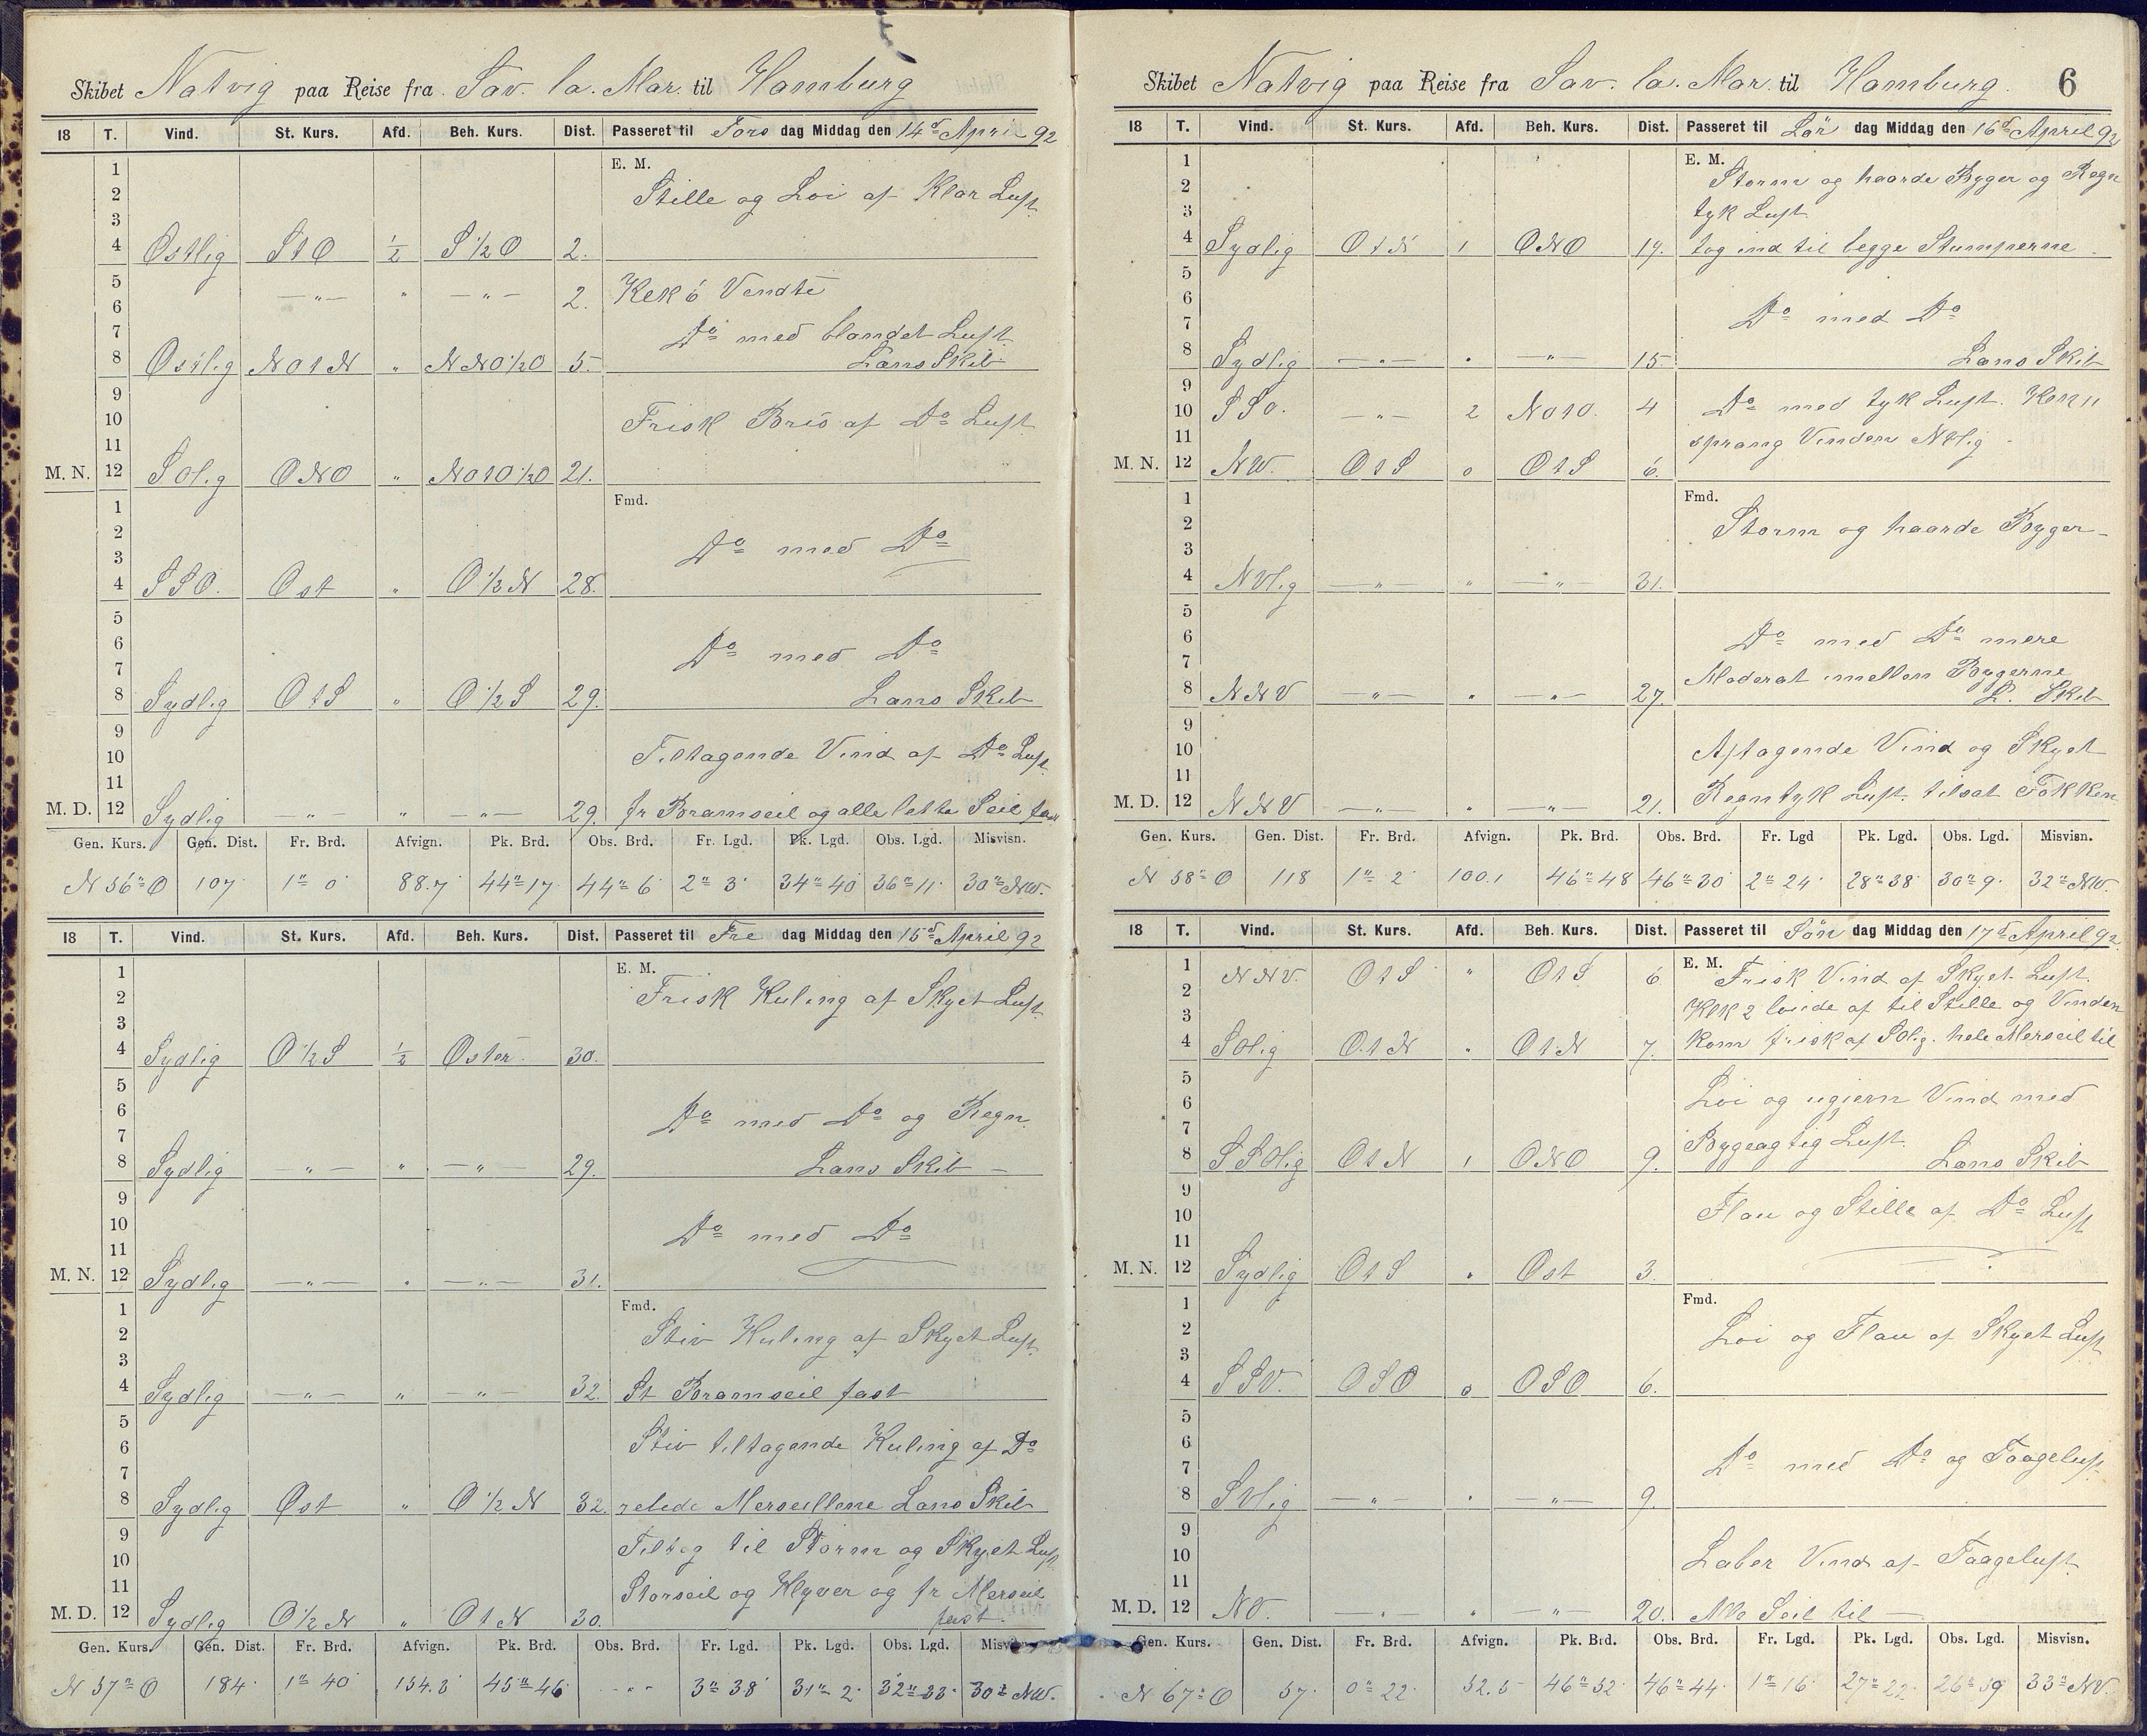 Skibet Natvig paa Reise fra Sav. la. Mar. til Hamburg
18 T. Vind. St. Kurs. Afd. Beh. Kurs. Dist. Passeret til Tors dag Middag den 14d April 92
1 E. M.
2 Stille og Løi af Klar Luft
3
4 Østlig S t O 1/2 S 1/2 O 2.
5
6 —"— " —"— 2. Klk 6 Vendte
7 Do med blandet Luft
8 Østlig NOtN " NNO 1/2 O 5. Lans Skib
9
10 Frisk Bris af Do Luft
11
M. N. 12 SOlig ONO " NOtO 1/2 O 21.
1 Fmd.
2
3 Do med Do
4 SSO. Ost " O 1/2 N 28.
5
6 Do med Do
7
8 Sydlig OtS " O 1/2 S 29. Lans Skib
9
10 Tiltagende Vind af Do Luft
11
M. D. 12 Sydlig —"— " —"— 29. fr Bramseil og alle lette Seil fast
Gen. Kurs. Gen. Dist. Fr. Brd. Afvign. Pk. Brd. Obs. Brd. Fr. Lgd. Pk. Lgd. Obs. Lgd. Misvisn.
N 56° O 107 1° 0' 88.7 44° 17' 44° 6' 2° 3' 34° 40' 36° 11' 30° NW.
18 T. Vind. St. Kurs. Afd. Beh. Kurs. Dist. Passeret til Fre dag Middag den 15d April 92
1 E. M.
2 Frisk Kuling af Skyet Luft
3
4 Sydlig O 1/2 S 1/2 Osten 30.
5
6 Do med Do og Regn
7
8 Sydlig —"— " —"— 29. Lans Skib —
9
10 Do med Do
11
M. N. 12 Sydlig —"— " —"— 31.
1 Fmd.
2 Stiv Kuling af Skyet Luft
3
4 Sydlig —"— " —"— 32. St Bramseil fast
5
6 Stiv tiltagende Kuling af Do
7
8 Sydlig Øst " O 1/2 N 32. rebede Merseillene Lans Skib
9
10 Tiltog til Storm og Skyet Luft
11 Storseil og Klyver og fr Merseil
M. D. 12 Sydlig O 1/2 N " OtN 30. fast.
Gen. Kurs. Gen. Dist. Fr. Brd. Afvign. Pk. Brd. Obs. Brd. Fr. Lgd. Pk. Lgd. Obs. Lgd. Misvisn.
N 57° O 184 1° 40' 154.3 45° 46' -"- 3° 38' 31° 2' 32° 33' 30° NW.
Skibet Natvig paa Reise fra Sav. la. Mar. til Hamburg. 6
18 T. Vind. St. Kurs. Afd. Beh. Kurs. Dist. Passeret til Lør dag Middag den 16d April 92
1 E. M.
2 Storm og haarde Byger og Regn
3 tyk Luft
4 Sydlig OtN 1 ONO 19. tog ind til begge Stumperne
5
6 Do med Do
7
8 Sydlig —"— " —"— 15. Lans Skib
9
10 SSO. —"— 2 NOtO. 4 Do med tyk Luft. Klk 11
11 sprang Vinden NVlig
M. N. 12 NW. OtS 0 OtS 6.
1 Fmd.
2 Storm og haarde Byger
3
4 NVlig —"— " —"— 31.
5
6 Do med Do mere
7 Moderat imellem Bygerne
8 NNV —"— " —"— 27. L. Skib
9
10 Aftagende Vind og Skyet
11
M. D. 12 NNV —"— " —"— 21. Regntyk Luft. tilsat Fokken
Gen. Kurs. Gen. Dist. Fr. Brd. Afvign. Pk. Brd. Obs. Brd. Fr. Lgd Pk. Lgd. Obs. Lgd. Misvisn.
N 58° O 118 1° 2' 100.1 46° 48' 46° 30' 2° 24' 28° 38' 30° 9' 32° NW.
18 T. Vind. St. Kurs. Afd. Beh. Kurs. Dist. Passeret til Søn dag Middag den 17d April 92.
1 NNV. OtS " OtS 6 E. M. Frisk Vind af Skyet Luft.
2 Klk 2 løiede af til Stille og Vinden
3
4 SOlig OtN " OtN 7. kom frisk af SOlig. hele Merseil til
5
6 Løi og ugjevn Vind med
7
8 SSOlig OtN 1 ONO 9. Bygeagtig Luft. Lans Skib
9
10 Flau og Stille af Do Luft
11
M. N. 12 Sydlig OtS " Ost 3.
1 Fmd.
2 Løi og Flau af Skyet Luft
3
4 SSV. OSO 0 OSO 6.
5
6 Do med Do og Taageluft
7
8 SVlig —"— " —"— 9.
9
10 Laber Vind af Taageluft
11
M. D. 12 NV. —"— " —"— 20. Alle Seil til —
Gen. Kurs. Gen. Dist. Fr. Brd. Afvign. Pk. Brd. Obs. Brd. Fr. Lgd. Pk. Lgd. Obs. Lgd. Misvisn.
N 67° O 57 0° 22' 52.5 46° 52' 46° 44' 1° 16' 27° 22' 26° 59' 33° NV.